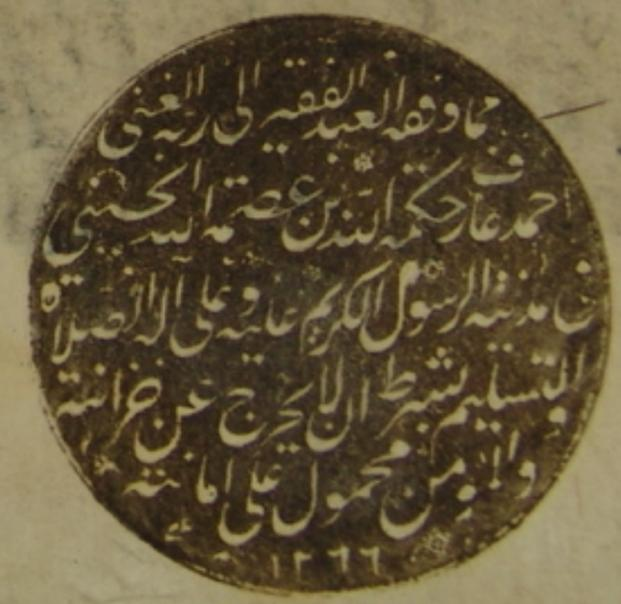 مما وقفه العبد الفقير الى ربه الغني
احمد عارف حكمة الله بن عصمة الله الحسيني
في مدينة الرسول الكريم عليه وعلى آله الصلاة
والتسليم بشرط ان لا يخرج عن خزانته
والمؤمن محمول على امانته
١٢٦٦